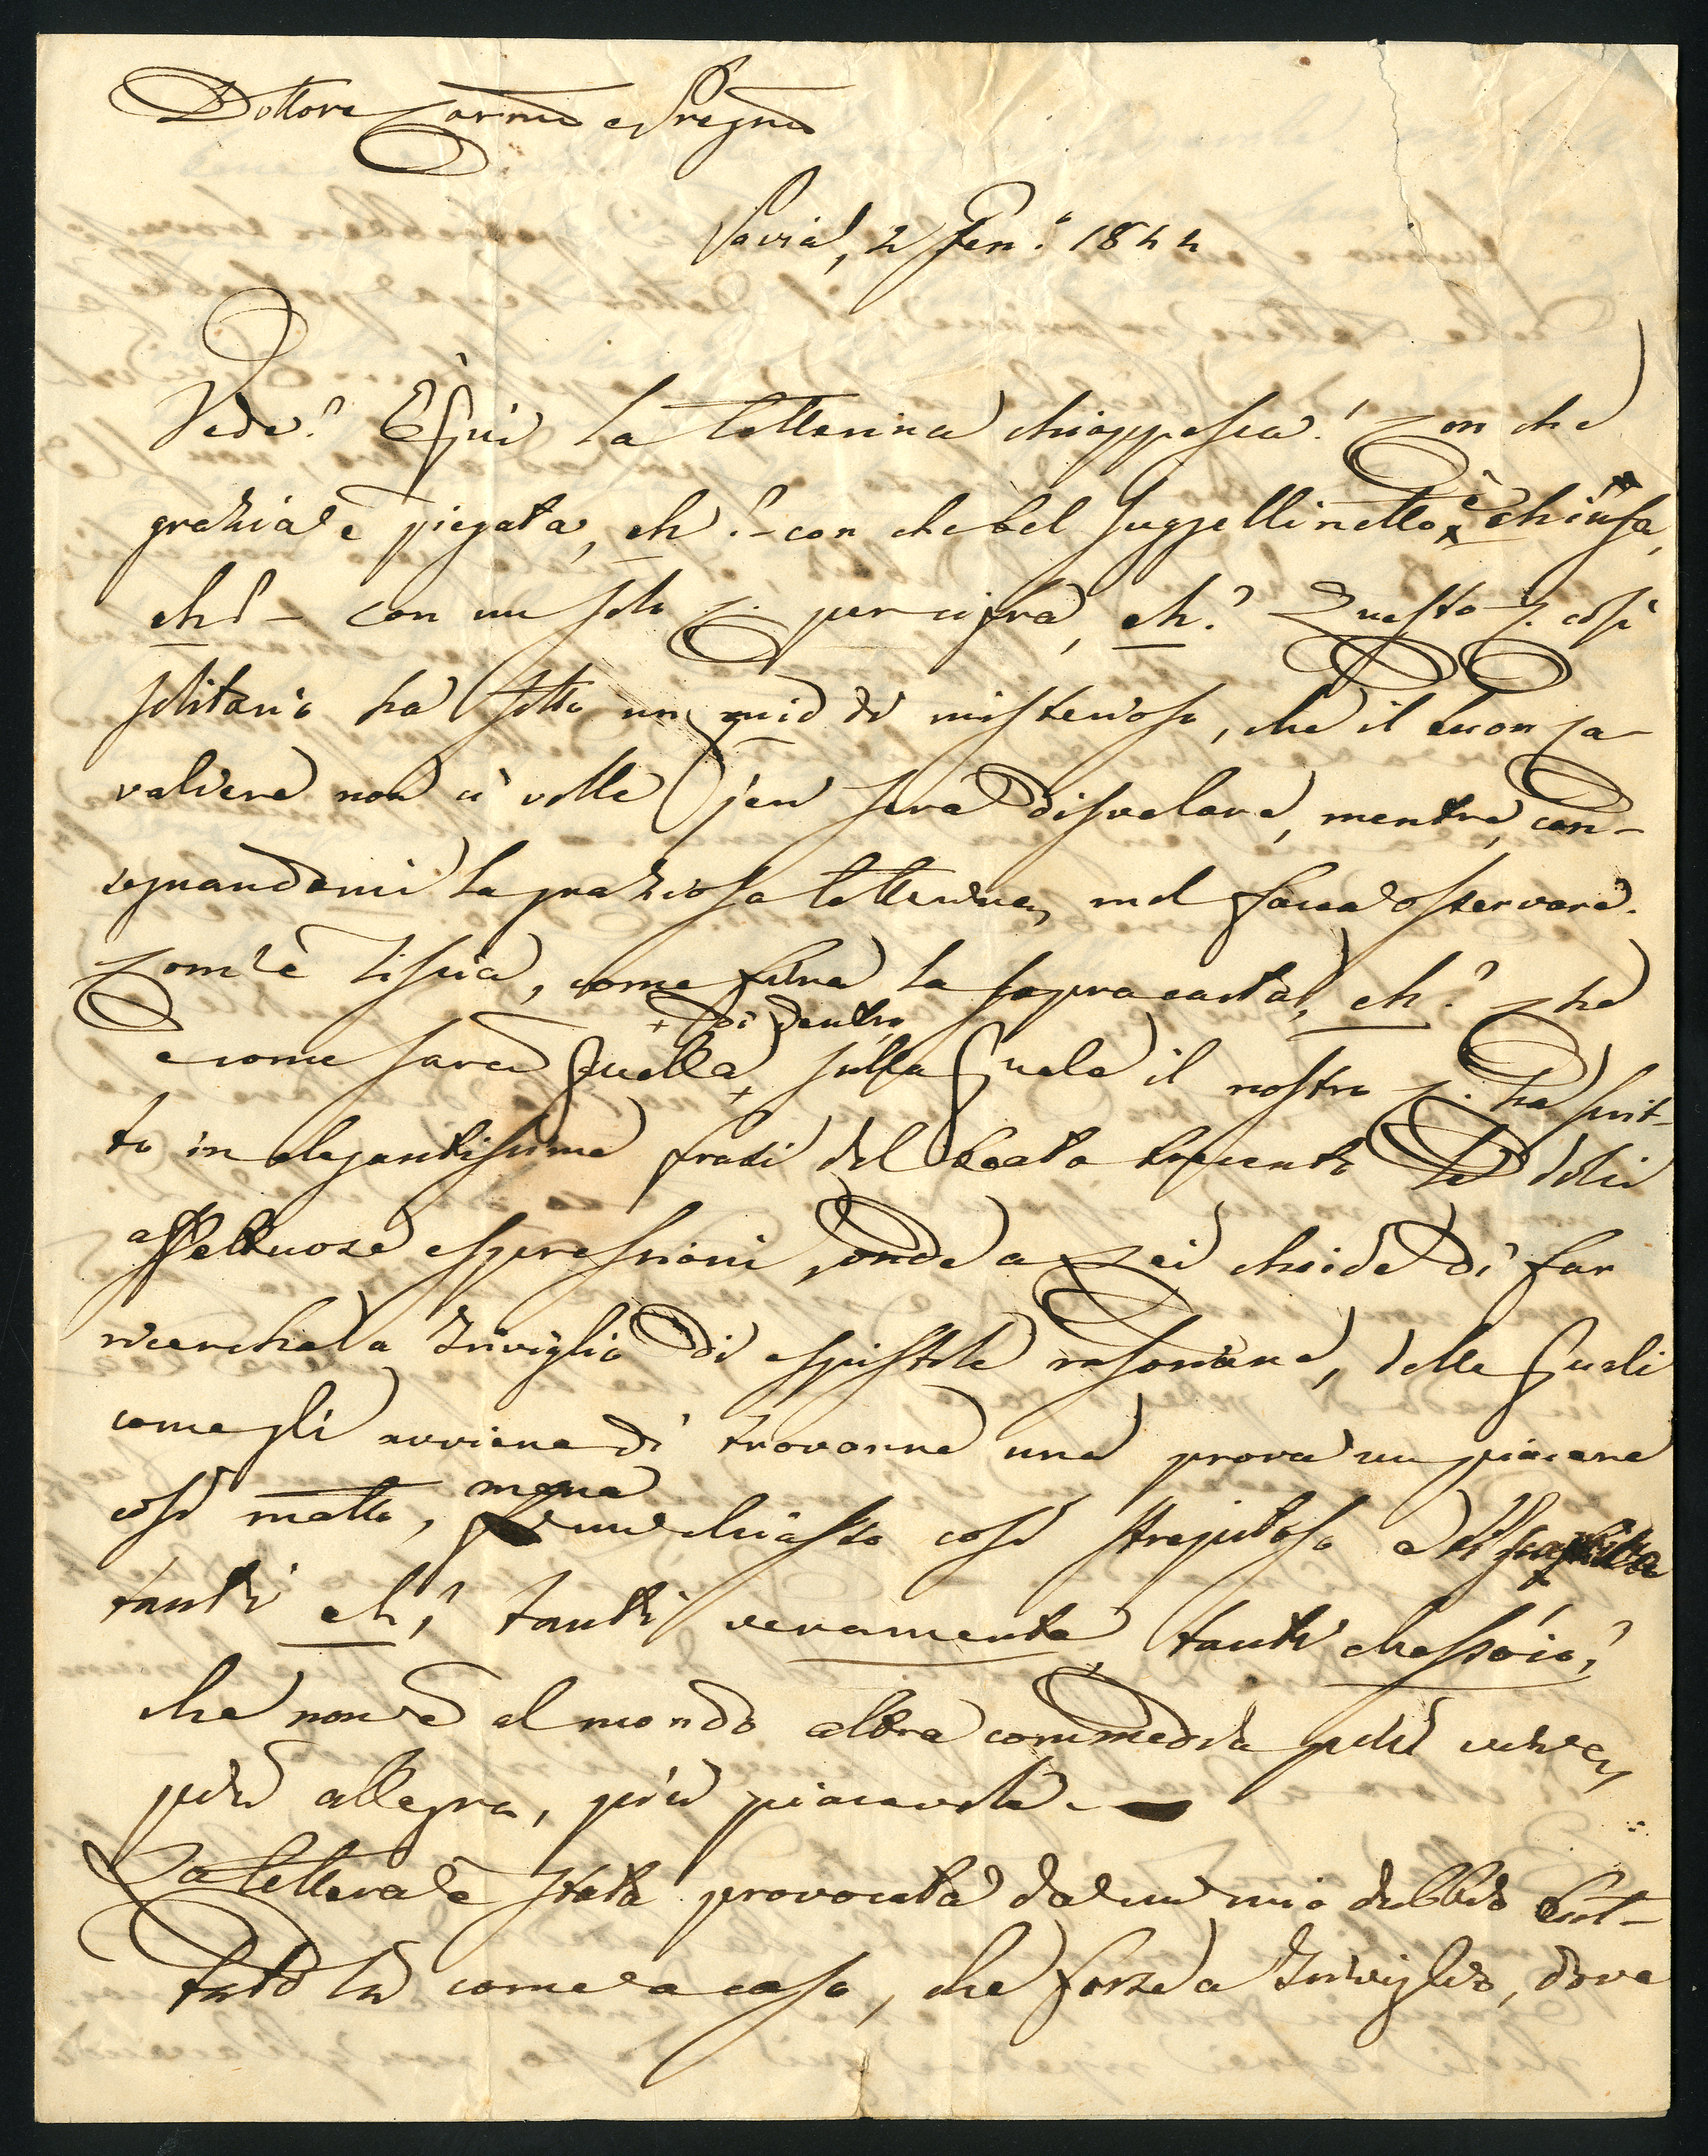 Dottore Car.mo e Preg.mo
Pavia, 2 Gen.o 1844
Vede? E qui la letterina chiappesca! Con che
grazia è piegata, eh? - con che bel suggellinetto è chiusa,
eh? - con un solo C. per cifra, eh? Questo C. così
solitario ha sotto un quid di misterioso, che il buon Ca-
valiere non ci volle jeri sera disvelare, mentre, con-
segnandomi la graziosa letterina, mel facea osservare.
Com'è liscia, come fina la sopracarta, eh? Che
e come sarà quella + di dentro, sulla quale il nostro C. ha scrit-
to in elegantissime frasi del beato trecento le dolci
affettuose espressioni, onde a Lei chiede di far
ricerche a Triviglio di epistole rasoriane, delle quali
come gli avviene di trovarne una prova un piacere
così matto, mena un chiasso così strepitoso e
tanti eh? tanti veramente? tanti chessóio?
che non v'è al mondo altra commedia più
più allegra, più piacevole. -
La lettera è stata provocata da un mio dubbio but-
tato là come a caso, che forse a Triviglio, dove